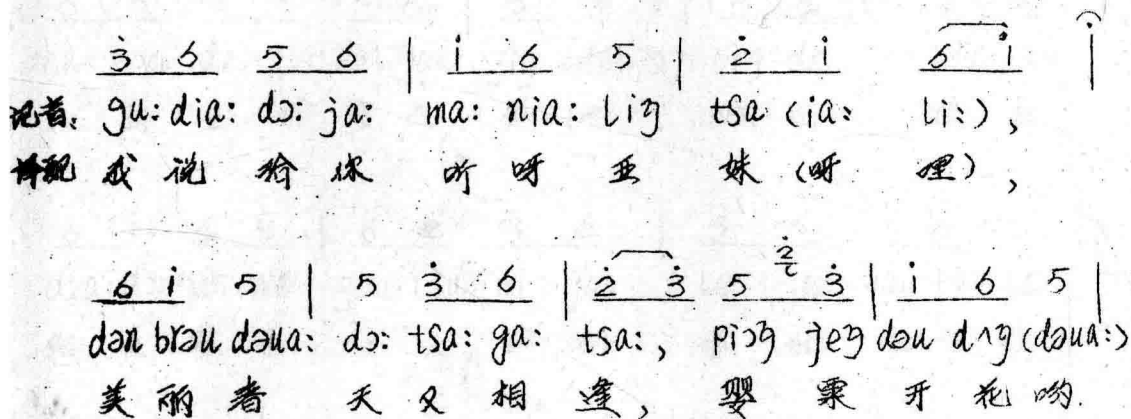 3̇ 6 5 6 | i̇ 6 5 | 2̇ i̇ 6 i̇ |
记音: gu: dia: dɔ: ja: ma: nia: liŋ tsa (ia: li:),
译配 我 说 给 你 听 呀 亚 妹 (呀 哩),
6 i̇ 5 | 5 3̇ 6 | 2̇ 3̇ 5 2̇ 3̇ | i̇ 6 5 |
dən brəu dəua: dɔ: tsa: ga: tsa:, piɔŋ jeŋ dəu dʌŋ (dəua:)
美 丽 者 天 又 相 逢, 婴 粟 开 花 哟.